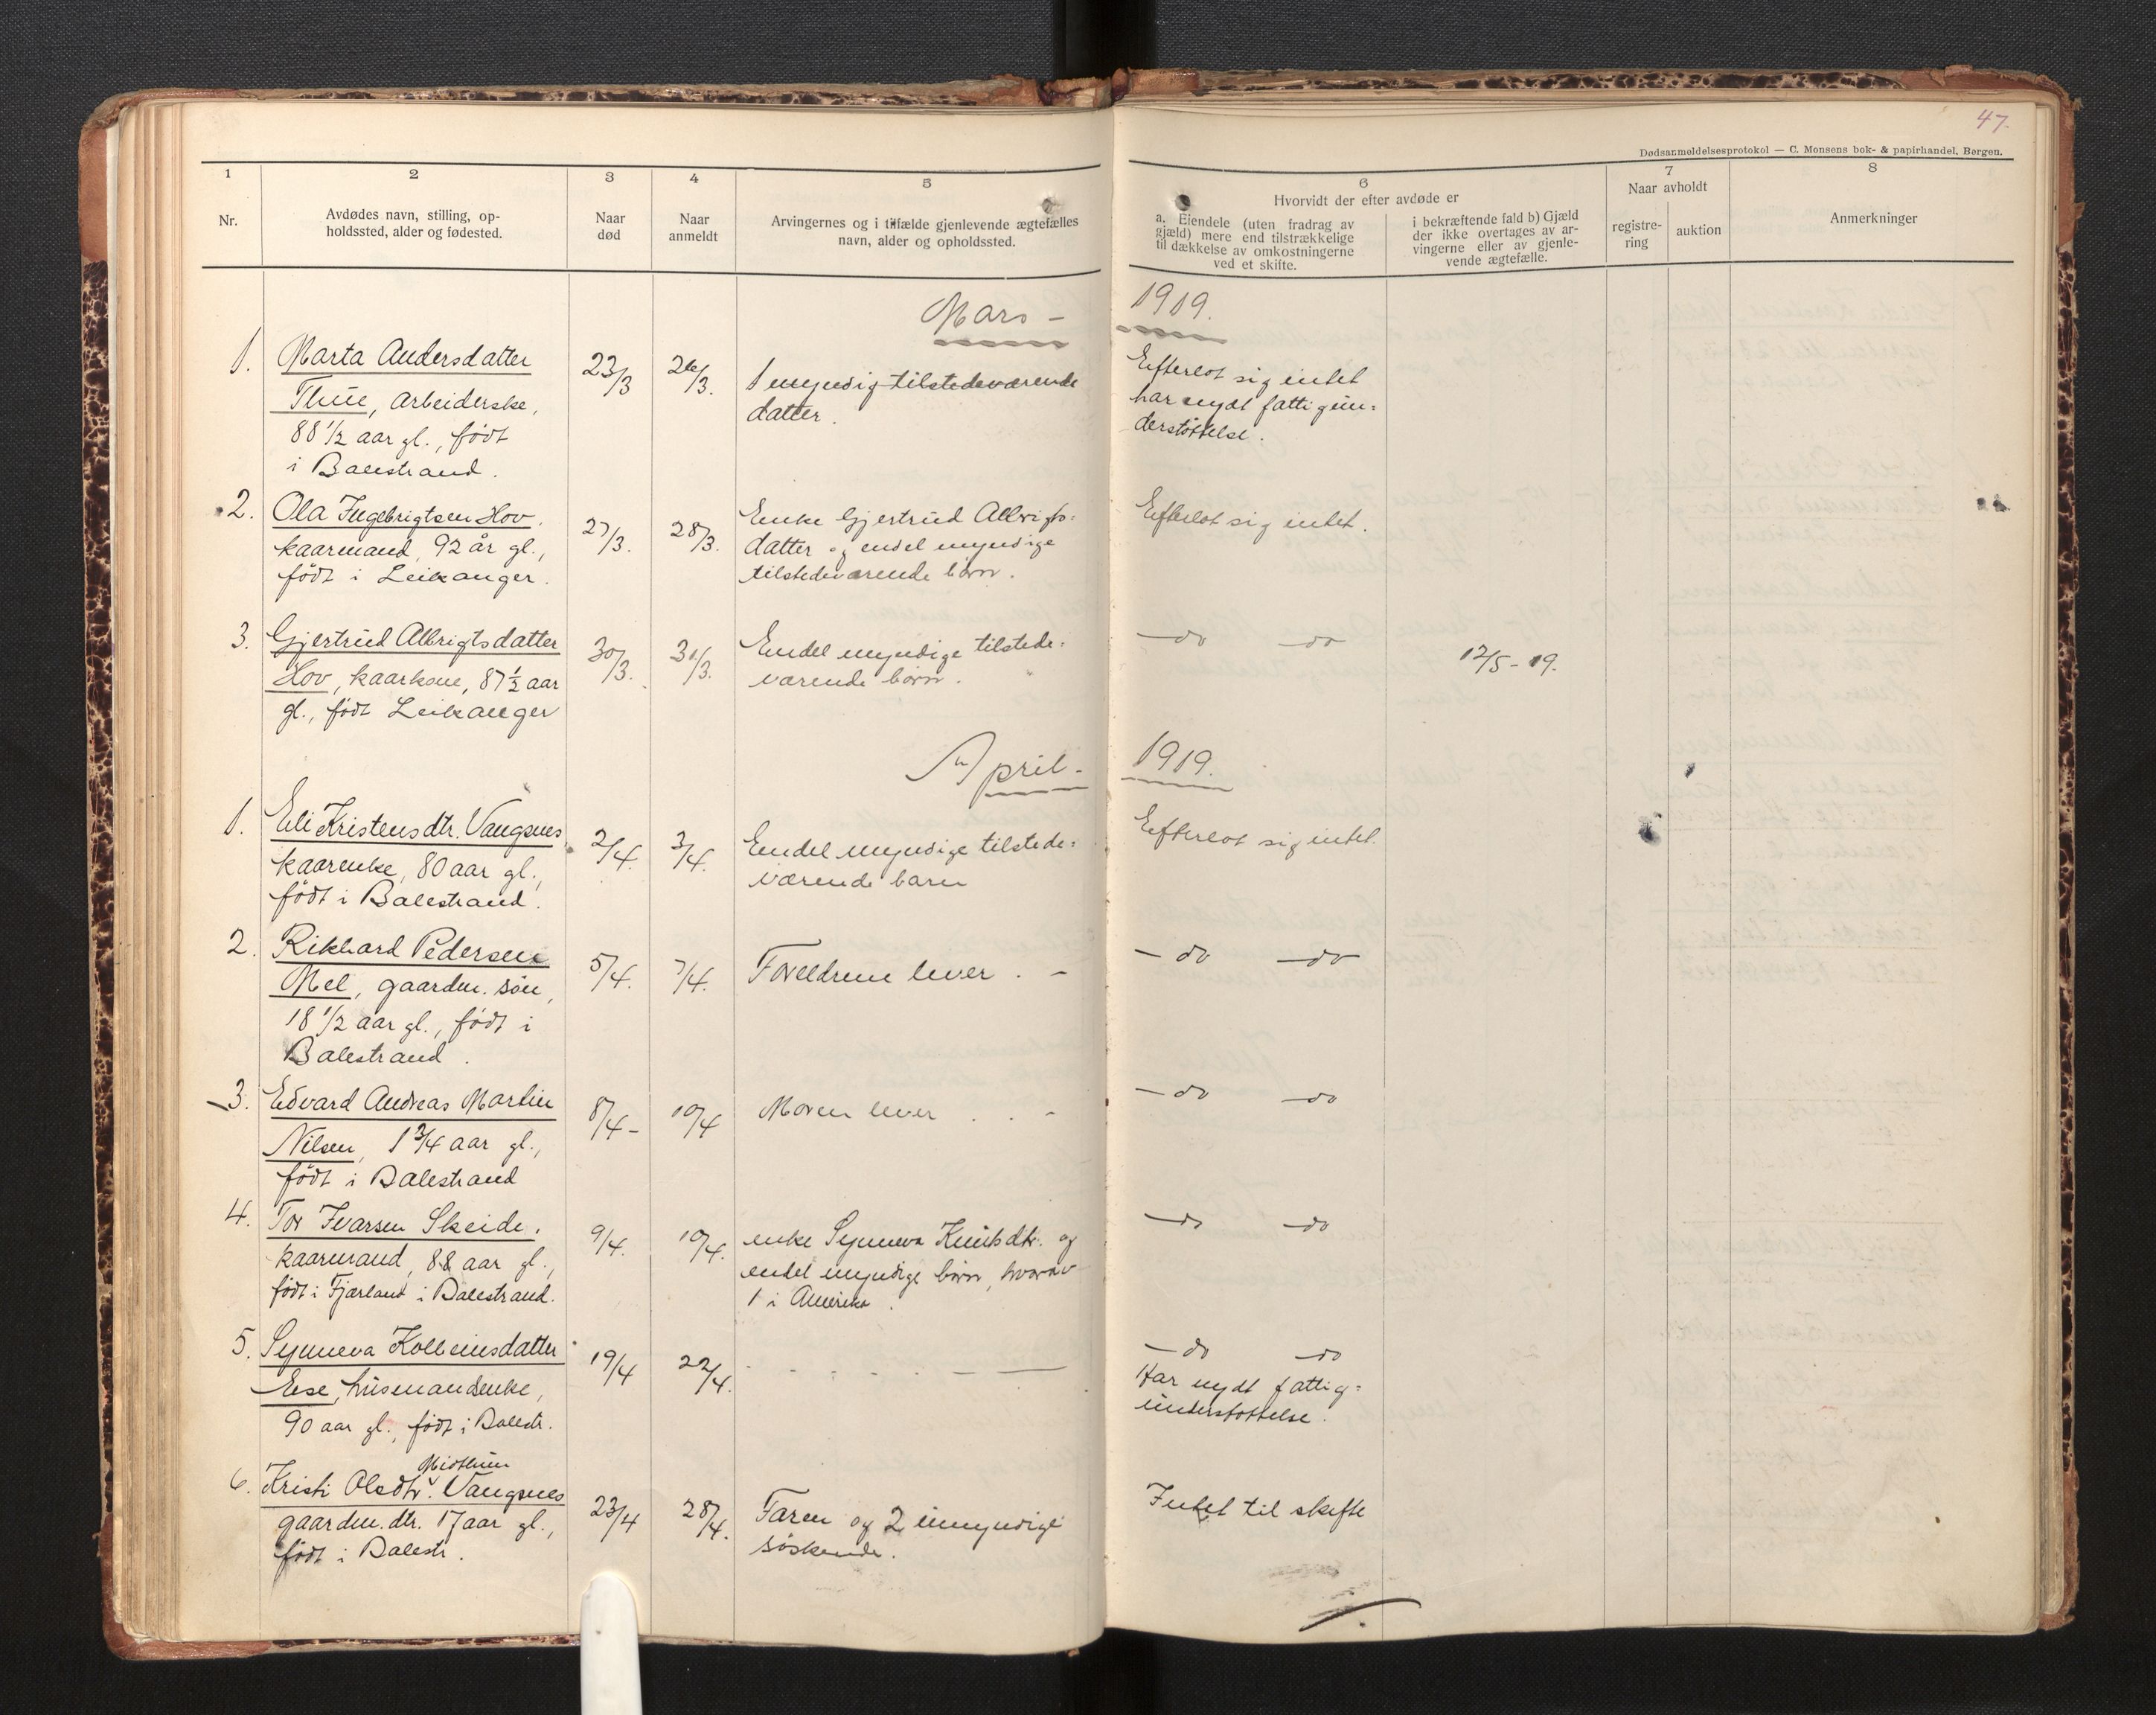 47.
Dødsanmeldelsesprotokol — C. Monsens bok- & papirhandel, Bergen.
1 2 3 4 5 6 7 8
Nr.
Avdødes navn, stilling, op-
holdssted, alder og fødested.
Naar
død
Naar
anmeldt
Arvingernes og i tilfælde gjenlevende ægtefælles
navn, alder og opholdssted.
Hvorvidt der efter avdøde er
a. Eiendele (uten fradrag av
gjæld) mere end tilstrækkelige
til dækkelse av omkostningerne
ved et skifte.
i bekræftende fald b) Gjæld
der ikke overtages av ar-
vingerne eller av gjenle-
vende ægtefælle.
Naar avholdt
registre-
ring
auktion
Anmerkninger
Mars - 1919.
1. Marta Andersdatter
Thue, Arbeiderske,
88 1/2 aar gl., født
i Balestrand.
23/3
26/3.
1 myndig tilstedeværende
datter.
Efterlot sig intet
har nydt fattigun=
derstøttelse.
2. Ola Ingebrigtsen Hov,
kaarmand, 92 år gl.,
født i Leikanger.
27/3.
28/3.
Enke Gjertrud Albrigts=
datter og endel myndige
tilstedeværende børn.
Efterlot sig intet.
3. Gjertrud Albrigtsdatter
Hov, kaarkone, 87 1/2 aar
gl., født Leikanger
30/3.
31/3.
Endel myndige tilstede=
værende børn.
— do — do
12/5 - 19.
April - 1919.
1. Eli Kristensdtr. Vangsnes,
kaarenke, 80 aar gl.,
født i Balestrand.
2/4.
3/4.
Endel myndige tilstede=
værende barn
Efterlot sig intet.
2. Rikhard Pedersen
Mel, gaardm. søn,
18 1/2 aar gl., født i
Balestrand.
5/4.
7/4.
Foreldrene lever. -
— do — do
3. Edvard Andreas Martin
Nilsen, 1 3/4 aar gl.,
født i Balestrand
8/4 -
10/4
Moren lever . -
— do — do
4. Tor Ivarsen Skeide.
kaarmand, 88 aar gl.,
født i Fjærland i Balestrand.
9/4.
10/4.
enke Synneva Knutsdtr. og
endel myndige børn, hvorav
1 i Amerika.
— do — do
5. Synneva Kolbeinsdatter
Ese, husmandsenke,
90 aar gl., født i Balestr.
19/4
22/4.
- - - - — —
— do — do
Har nydt fattig=
understøttelse.
Midthun
6. Kristi Olsdtr. Vangsnes
gaardm. dtr. 17 aar gl.,
født i Balestr.
23/4
28/4.
Faren og 2 umyndige
søskende.
Intet til skifte